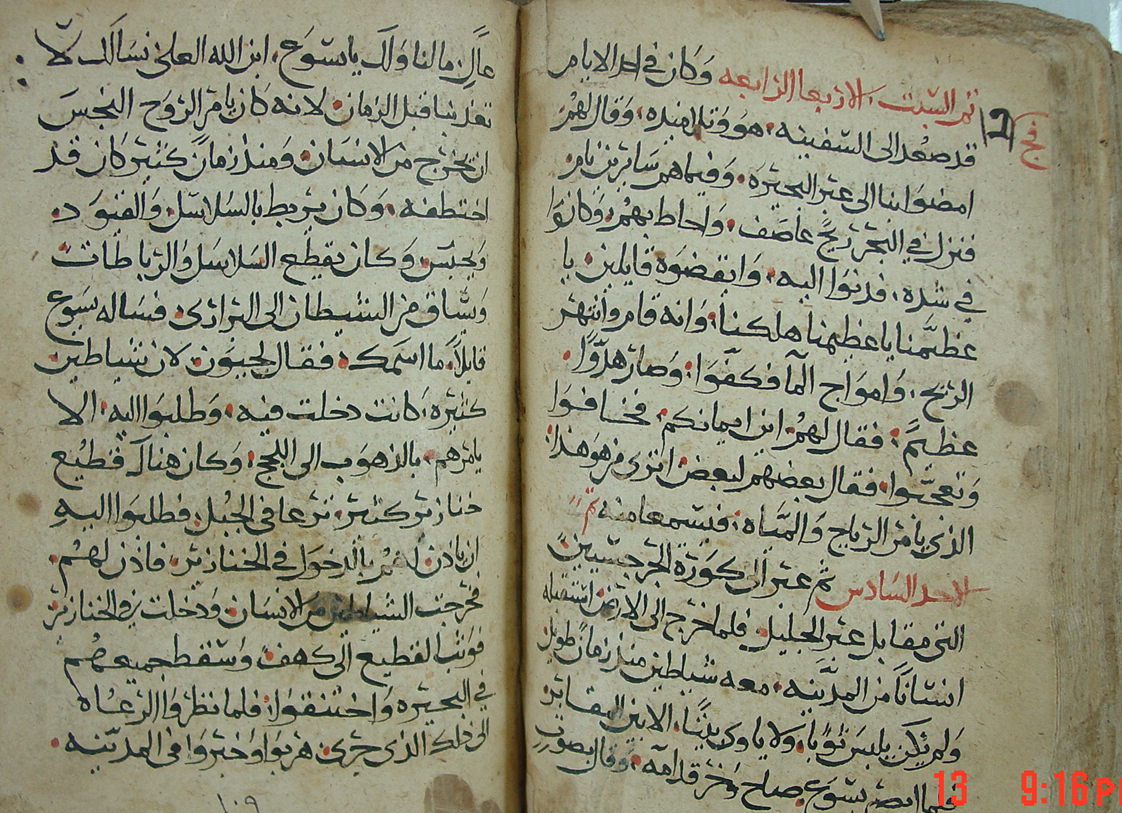 تم السبت. الاربعا الرابعه وكان في احد الايام
قد صعد الى السفينه. هو وتلاميذه. وقال لهم
امضوا بنا الى عبر البحيره. وفيما هم سايرين نام.
فنزل في البحر ريح عاصف. واحاط بهم. وكانوا
في شده. فدنوا اليه. وايقضوه قايلين يا
عظيمنا يا عظيمنا هلكنا. وانه قام وانتهر
الريح. وامواج الما فكفوا. وصار هدوا.
عظيم. فقال لهم. اين ايمانكم. فخافوا
وتعجبوا. فقال بعضهم لبعض اترى من هو هذا.
الذي يامر الرياح والمياه. فيسمعا منه تم
الاحد السادس ثم عبر الى كورة الجرجسيين
التي مقابل عبر الجليل. فلما خرج الى الارض استقبله
انسانا من المدينه. معه شياطين منذ زمان طويل
ولم يكن يلبس ثوبا. ولا ياوي بيتا. الا بين المقابر
فلما ابصر يسوع صاح وخر قدامه. وقال بصوت
عال مالنا ولك يا يسوع. ابن الله العلي نسالك لا
تعذبنا قبل الزمان. لانه كان يامر الروح النجس
ان يخرج من الانسان. ومنذ زمان كثير كان قد
اختطفه. وكان يربط بالسلاسل. والقيود.
ويحبس. وكان يقطع السلاسل والرباطات
ويساق من الشيطان الى البراري. فساله يسوع
قايلا. ما اسمك. فقال لجيون. لان شياطين
كثيره. كانت دخلت فيه. وطلبوا اليه. الا
يامرهم. بالذهوب الى اللجج. وكان هناك قطيع
خنازير كثير. ترعا في الجبل. فطلبوا اليه
ان ياذن لهم بالدخول في الخنازير. فاذن لهم.
فخرجت الشياطين من الانسان. ودخلت في الخنازير
فوثب القطيع الى كهف. وسقط جميعهم
في البحيره واختنقوا. فلما نظروا الرعاه
الى ذلك الذي جرى. هربوا واخبروا في المدينه.
١٠٩
13 9:16 P